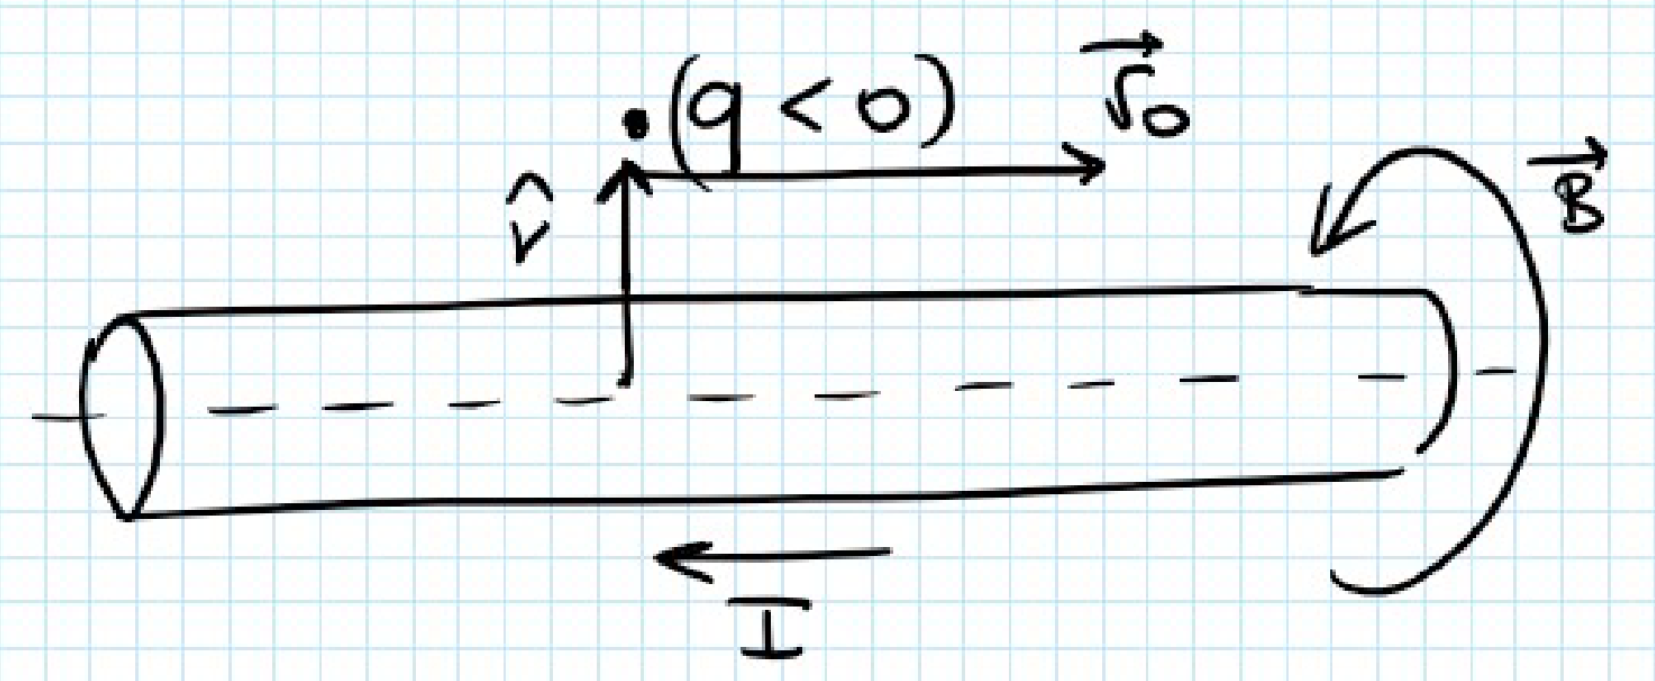 (q < 0) v⃗₀
r̂ B⃗
I